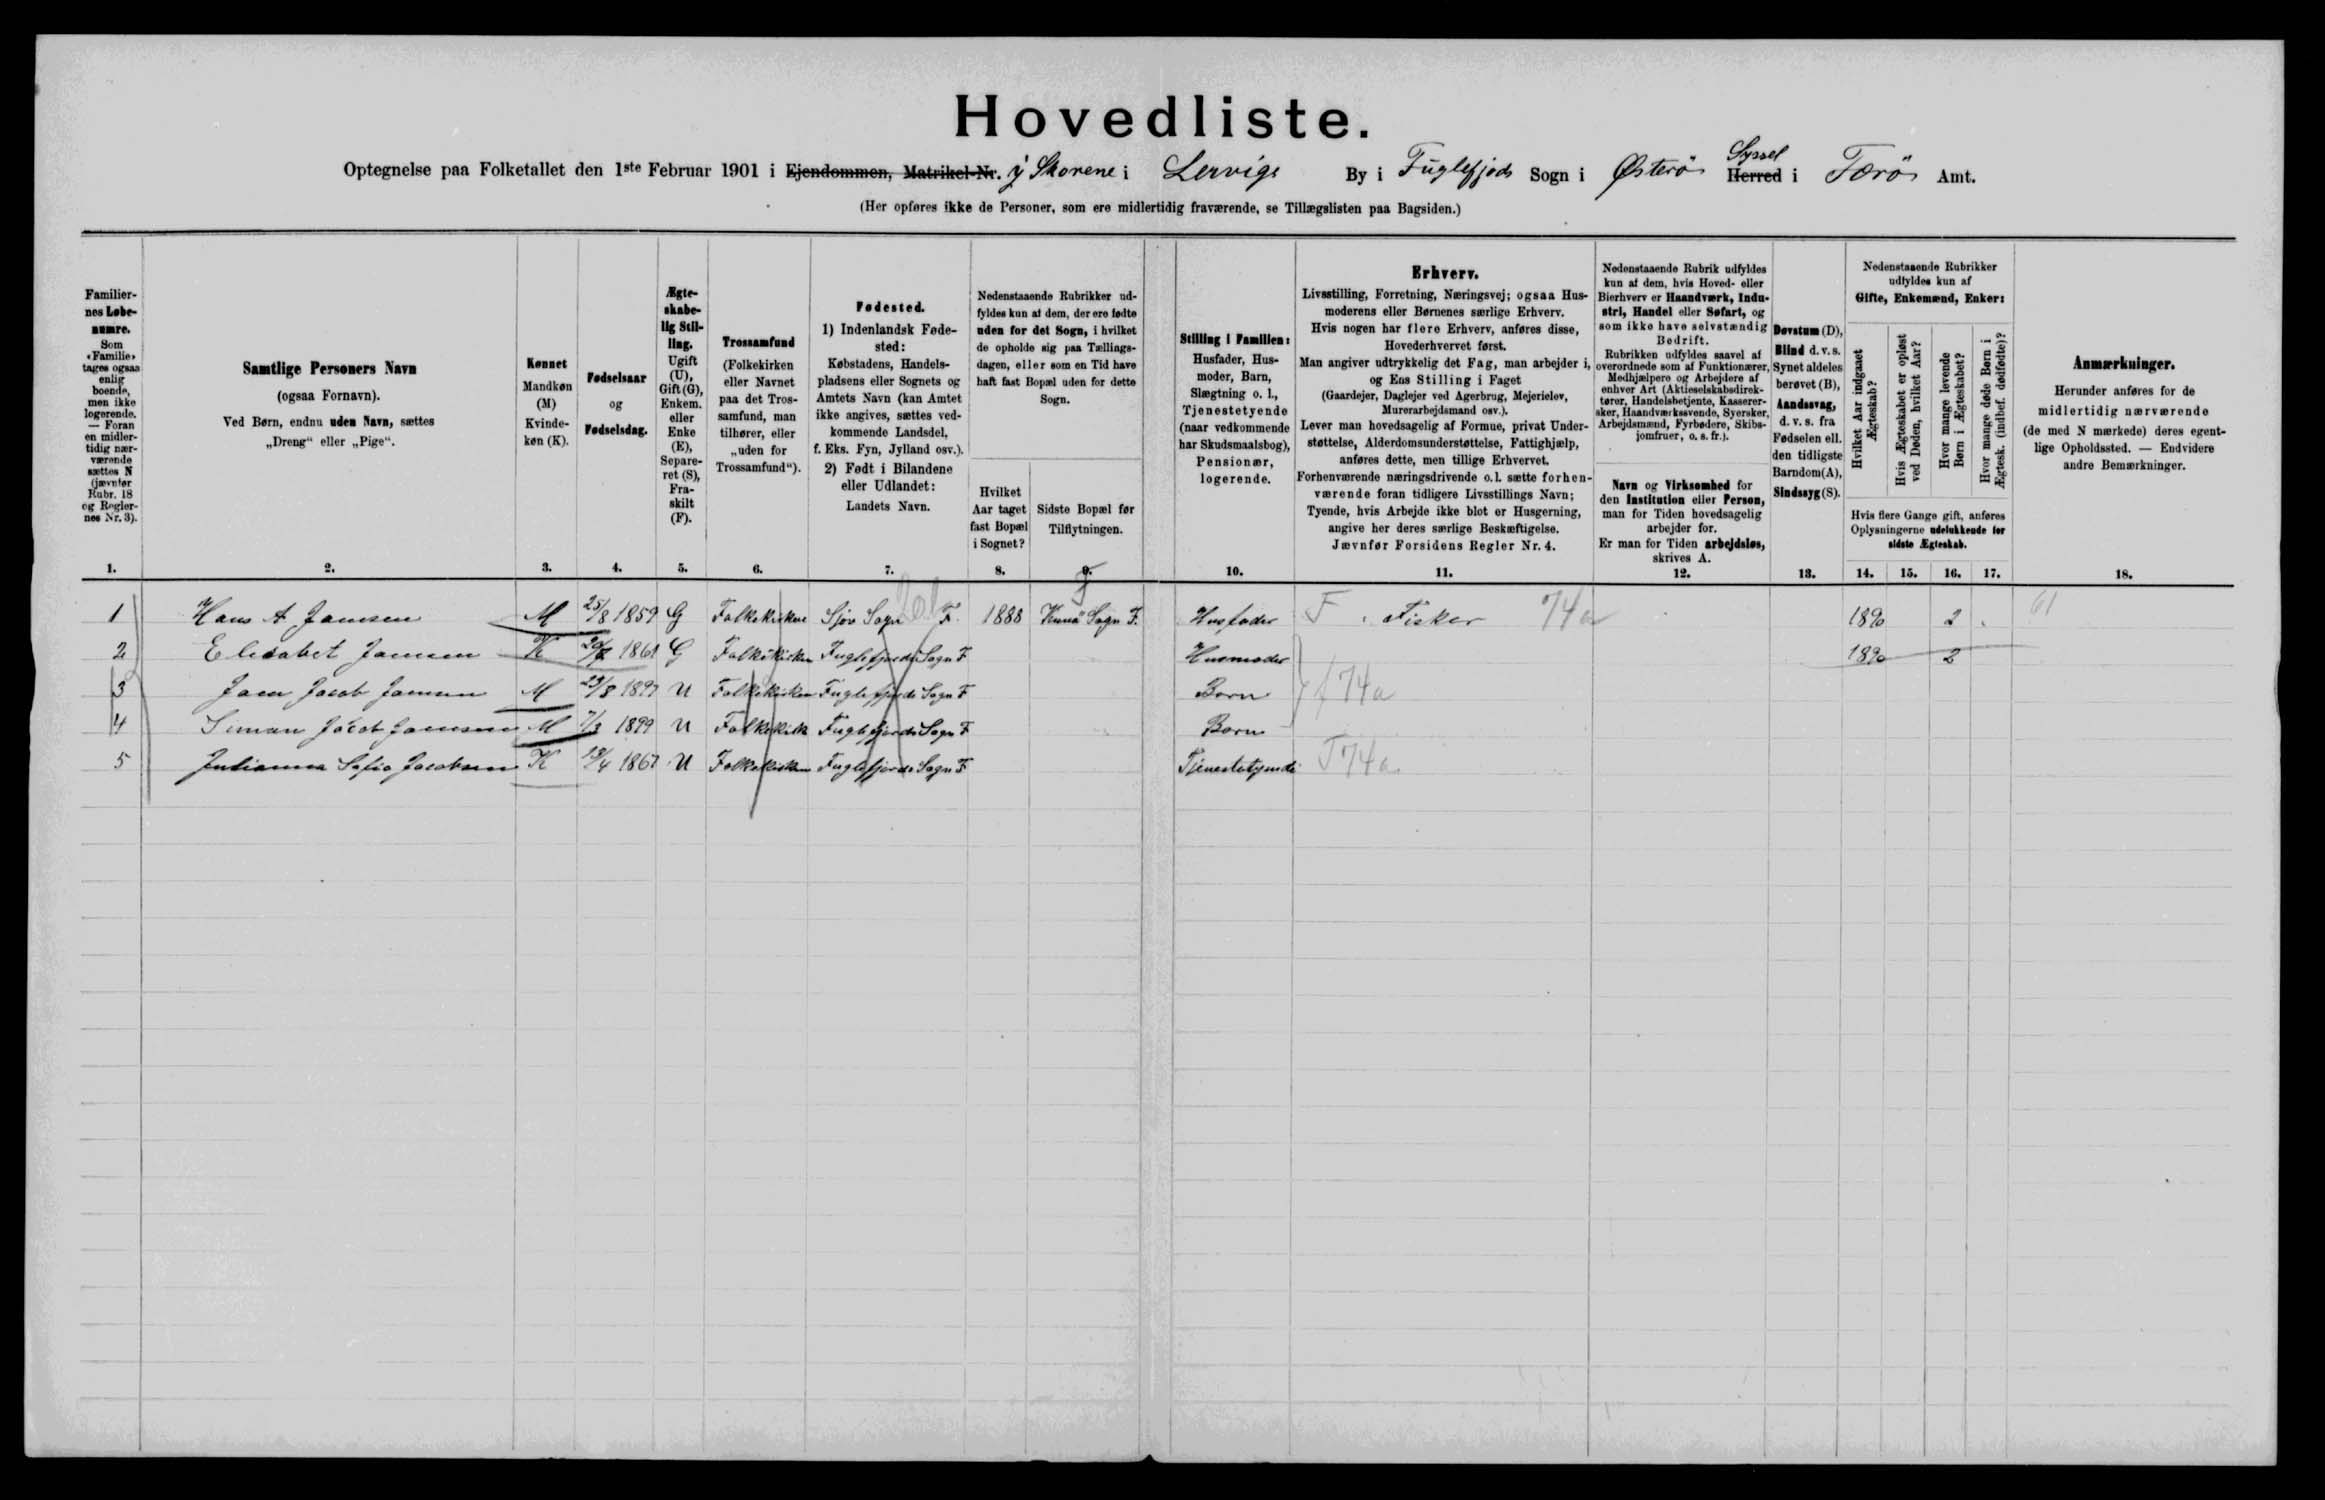 Hovedliste.
Optegnelse paa Folketallet den 1ste Februar 1901 i Ejendommen, Matrikel-Nr. i Skorene i Lervige By i Fuglefjods Sogn i Østerö Herred Syssel i Færö Amt.
(Her opføres ikke de Personer, som ere midlertidig fraværende, se Tillægslisten paa Bagsiden.)
Familier-
nes Løbe-
numre.
Som
«Familie»
tages ogsaa
enlig
boende,
men ikke
logerende.
— Foran
en midler-
tidig nær-
værende
sættes N
(jævnfør
Rubr. 18
og Regler-
nes Nr. 3).
Samtlige Personers Navn
(ogsaa Fornavn).
Ved Børn, endnu uden Navn, sættes
„Dreng“ eller „Pige“.
Kønnet
Mandkøn
(M)
Kvinde-
køn (K).
Fødselsaar
og
Fødselsdag.
Ægte-
skabe-
lig Stil-
ling.
Ugift
(U),
Gift (G),
Enkem.
eller
Enke
(E),
Separe-
ret (S),
Fra-
skilt
(F).
Trossamfund
(Folkekirken
eller Navnet
paa det Tros-
samfund, man
tilhører, eller
„uden for
Trossamfund“).
Fødested.
1) Indenlandsk Føde-
sted:
Købstadens, Handels-
pladsens eller Sognets og
Amtets Navn (kan Amtet
ikke angives, sættes ved-
kommende Landsdel,
f. Eks. Fyn, Jylland osv.).
2) Født i Bilandene
eller Udlandet:
Landets Navn.
Nedenstaaende Rubrikker ud-
fyldes kun af dem, der ere fødte
uden for det Sogn, i hvilket
de opholde sig paa Tællings-
dagen, eller som en Tid have
haft fast Bopæl uden for dette
Sogn.
Hvilket
Aar taget
fast Bopæl
i Sognet?
Sidste Bopæl før
Tilflytningen.
Stilling i Familien:
Husfader, Hus-
moder, Barn,
Slægtning o. l.,
Tjenestetyende
(naar vedkommende
har Skudsmaalsbog),
Pensionær,
logerende.
Erhverv.
Livsstilling, Forretning, Næringsvej; ogsaa Hus-
moderens eller Børnenes særlige Erhverv.
Hvis nogen har flere Erhverv, anføres disse,
Hovederhvervet først.
Man angiver udtrykkelig det Fag, man arbejder i,
og Ens Stilling i Faget
(Gaardejer, Daglejer ved Agerbrug, Mejerielev,
Murerarbejdsmand osv.).
Lever man hovedsagelig af Formue, privat Under-
støttelse, Alderdomsunderstøttelse, Fattighjælp,
anføres dette, men tillige Erhvervet.
Forhenværende næringsdrivende o.l. sætte forhen-
værende foran tidligere Livsstillings Navn;
Tyende, hvis Arbejde ikke blot er Husgerning,
angive her deres særlige Beskæftigelse.
Jævnfør Forsidens Regler Nr. 4.
Nedenstaaende Rubrik udfyldes
kun af dem, hvis Hoved- eller
Bierhverv er Haandværk, Indu-
stri, Handel eller Søfart, og
som ikke have selvstændig
Bedrift.
Rubrikken udfyldes saavel af
overordnede som af Funktionærer,
Medhjælpere og Arbejdere af
enhver Art (Aktieselskabsdirek-
tører, Handelsbetjente, Kasserer-
sker, Haandværkssvende, Syersker,
Arbejdsmænd, Fyrbødere, Skibs-
jomfruer, o. s. fr.).
Navn og Virksomhed for
den Institution eller Person,
man for Tiden hovedsagelig
arbejder for.
Er man for Tiden arbejdsløs,
skrives A.
Døvstum (D),
Blind d. v. s.
Synet aldeles
berøvet (B),
Aandssvag,
d. v. s. fra
Fødselen ell.
den tidligste
Barndom (A),
Sindssyg (S).
Nedenstaaende Rubrikker
udfyldes kun af
Gifte, Enkemænd, Enker:
Hvilket Aar indgaaet
Ægteskab?
Hvis Ægteskabet er opløst
ved Døden, hvilket Aar?
Hvor mange levende
Børn i Ægteskabet?
Hvor mange døde Børn i
Ægtesk. (indbef. dødfødte)?
Hvis flere Gange gift, anføres
Oplysningerne udelukkende for
sidste Ægteskab.
Anmærkninger.
Herunder anføres for de
midlertidig nærværende
(de med N mærkede) deres egent-
lige Opholdssted. — Endvidere
andre Bemærkninger.
1. 2. 3. 4. 5. 6. 7. 8. 9. 10. 11. 12. 13. 14. 15. 16. 17. 18.
1 Hans A Jamsen M 25/8 1859 G Folkekirken Sjov Sogn F. 1888 Kunö Sogn F. Husfader F Fisker 74a 1890 2 61
2 Elisabet Jamsen K 1861 G Folkekirken Fuglefjords Sogn F Husmoder 1890 2
3 Joen Jacob Jamsen M 29/8 1897 U Folkekirken Fuglefjords Sogn F Børn f 74a
4 Simun Jacob Jamsen M 7/3 1899 U Folkekirk Fuglefjords Sogn F Børn
5 Julianna Sofia Jacobsen K 13/4 1867 U Folkekirken Fuglefjords Sogn F Tjenestetyende T74a